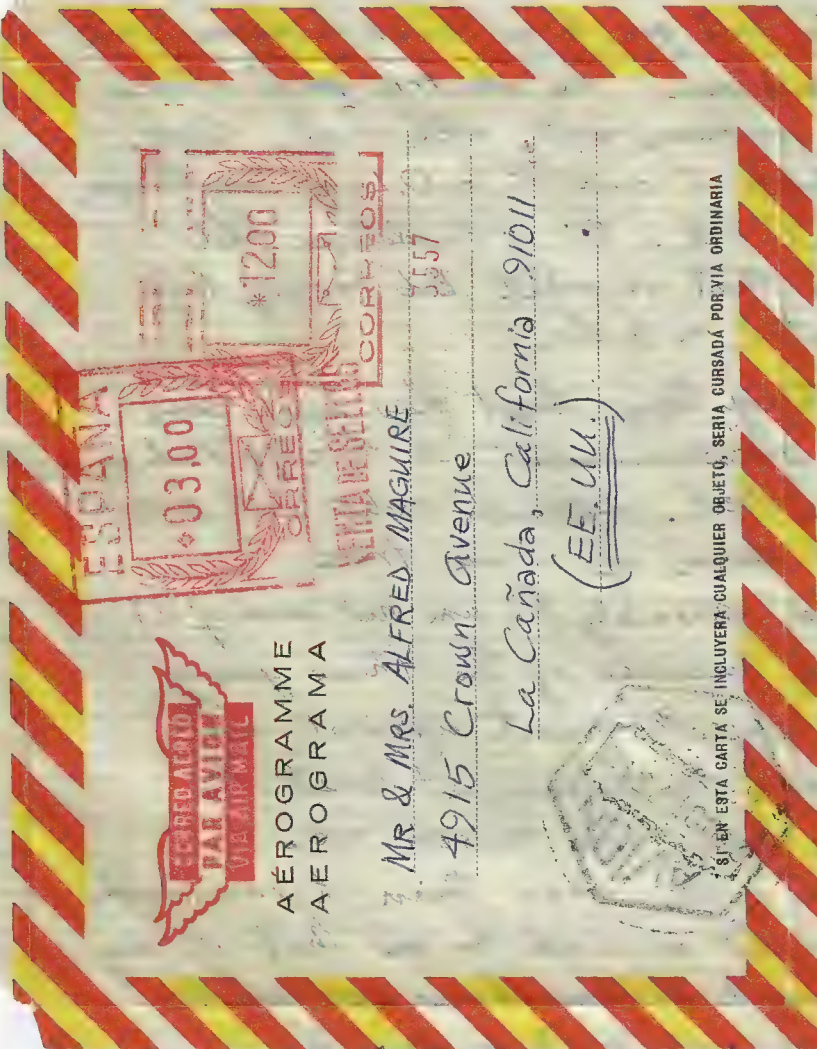 CORREO AEREO
PAR AVION
VIA AIR MAIL
AÉROGRAMME
AEROGRAMA
ESPAÑA
*03,00
CORREOS
*12,00
CORREOS
VENTA DE SELLOS
MR & MRS. ALFRED MAGUIRE
4915 Crown Avenue
La Cañada, California 91011
(EE. UU.)
SI EN ESTA CARTA SE INCLUYERA CUALQUIER OBJETO, SERIA CURSADA POR VIA ORDINARIA